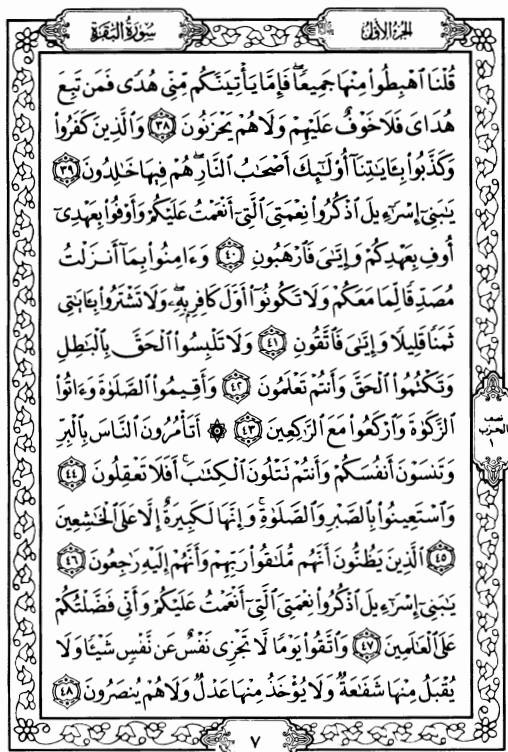 سُورَةُ البَقَرَةِ
الجُزْءُ الأَوَّلُ
قُلْنَا ٱهْبِطُوا۟ مِنْهَا جَمِيعًۭا ۖ فَإِمَّا يَأْتِيَنَّكُم مِّنِّى هُدًۭى فَمَن تَبِعَ
هُدَاىَ فَلَا خَوْفٌ عَلَيْهِمْ وَلَا هُمْ يَحْزَنُونَ ٣٨ وَٱلَّذِينَ كَفَرُوا۟
وَكَذَّبُوا۟ بِـَٔايَـٰتِنَآ أُو۟لَـٰٓئِكَ أَصْحَـٰبُ ٱلنَّارِ ۖ هُمْ فِيهَا خَـٰلِدُونَ ٣٩
يَـٰبَنِىٓ إِسْرَٰٓءِيلَ ٱذْكُرُوا۟ نِعْمَتِىَ ٱلَّتِىٓ أَنْعَمْتُ عَلَيْكُمْ وَأَوْفُوا۟ بِعَهْدِىٓ
أُوفِ بِعَهْدِكُمْ وَإِيَّـٰىَ فَٱرْهَبُونِ ٤٠ وَءَامِنُوا۟ بِمَآ أَنزَلْتُ
مُصَدِّقًۭا لِّمَا مَعَكُمْ وَلَا تَكُونُوٓا۟ أَوَّلَ كَافِرٍۭ بِهِۦ ۖ وَلَا تَشْتَرُوا۟ بِـَٔايَـٰتِى
ثَمَنًۭا قَلِيلًۭا وَإِيَّـٰىَ فَٱتَّقُونِ ٤١ وَلَا تَلْبِسُوا۟ ٱلْحَقَّ بِٱلْبَـٰطِلِ
وَتَكْتُمُوا۟ ٱلْحَقَّ وَأَنتُمْ تَعْلَمُونَ ٤٢ وَأَقِيمُوا۟ ٱلصَّلَوٰةَ وَءَاتُوا۟
ٱلزَّكَوٰةَ وَٱرْكَعُوا۟ مَعَ ٱلرَّٰكِعِينَ ٤٣ ۞ أَتَأْمُرُونَ ٱلنَّاسَ بِٱلْبِرِّ
وَتَنسَوْنَ أَنفُسَكُمْ وَأَنتُمْ تَتْلُونَ ٱلْكِتَـٰبَ ۚ أَفَلَا تَعْقِلُونَ ٤٤
وَٱسْتَعِينُوا۟ بِٱلصَّبْرِ وَٱلصَّلَوٰةِ ۚ وَإِنَّهَا لَكَبِيرَةٌ إِلَّا عَلَى ٱلْخَـٰشِعِينَ
٤٥ ٱلَّذِينَ يَظُنُّونَ أَنَّهُم مُّلَـٰقُوا۟ رَبِّهِمْ وَأَنَّهُمْ إِلَيْهِ رَٰجِعُونَ ٤٦
يَـٰبَنِىٓ إِسْرَٰٓءِيلَ ٱذْكُرُوا۟ نِعْمَتِىَ ٱلَّتِىٓ أَنْعَمْتُ عَلَيْكُمْ وَأَنِّى فَضَّلْتُكُمْ
عَلَى ٱلْعَـٰلَمِينَ ٤٧ وَٱتَّقُوا۟ يَوْمًۭا لَّا تَجْزِى نَفْسٌ عَن نَّفْسٍۢ شَيْـًۭٔا وَلَا
يُقْبَلُ مِنْهَا شَفَـٰعَةٌۭ وَلَا يُؤْخَذُ مِنْهَا عَدْلٌۭ وَلَا هُمْ يُنصَرُونَ ٤٨
نصف
الحزب
١
٧